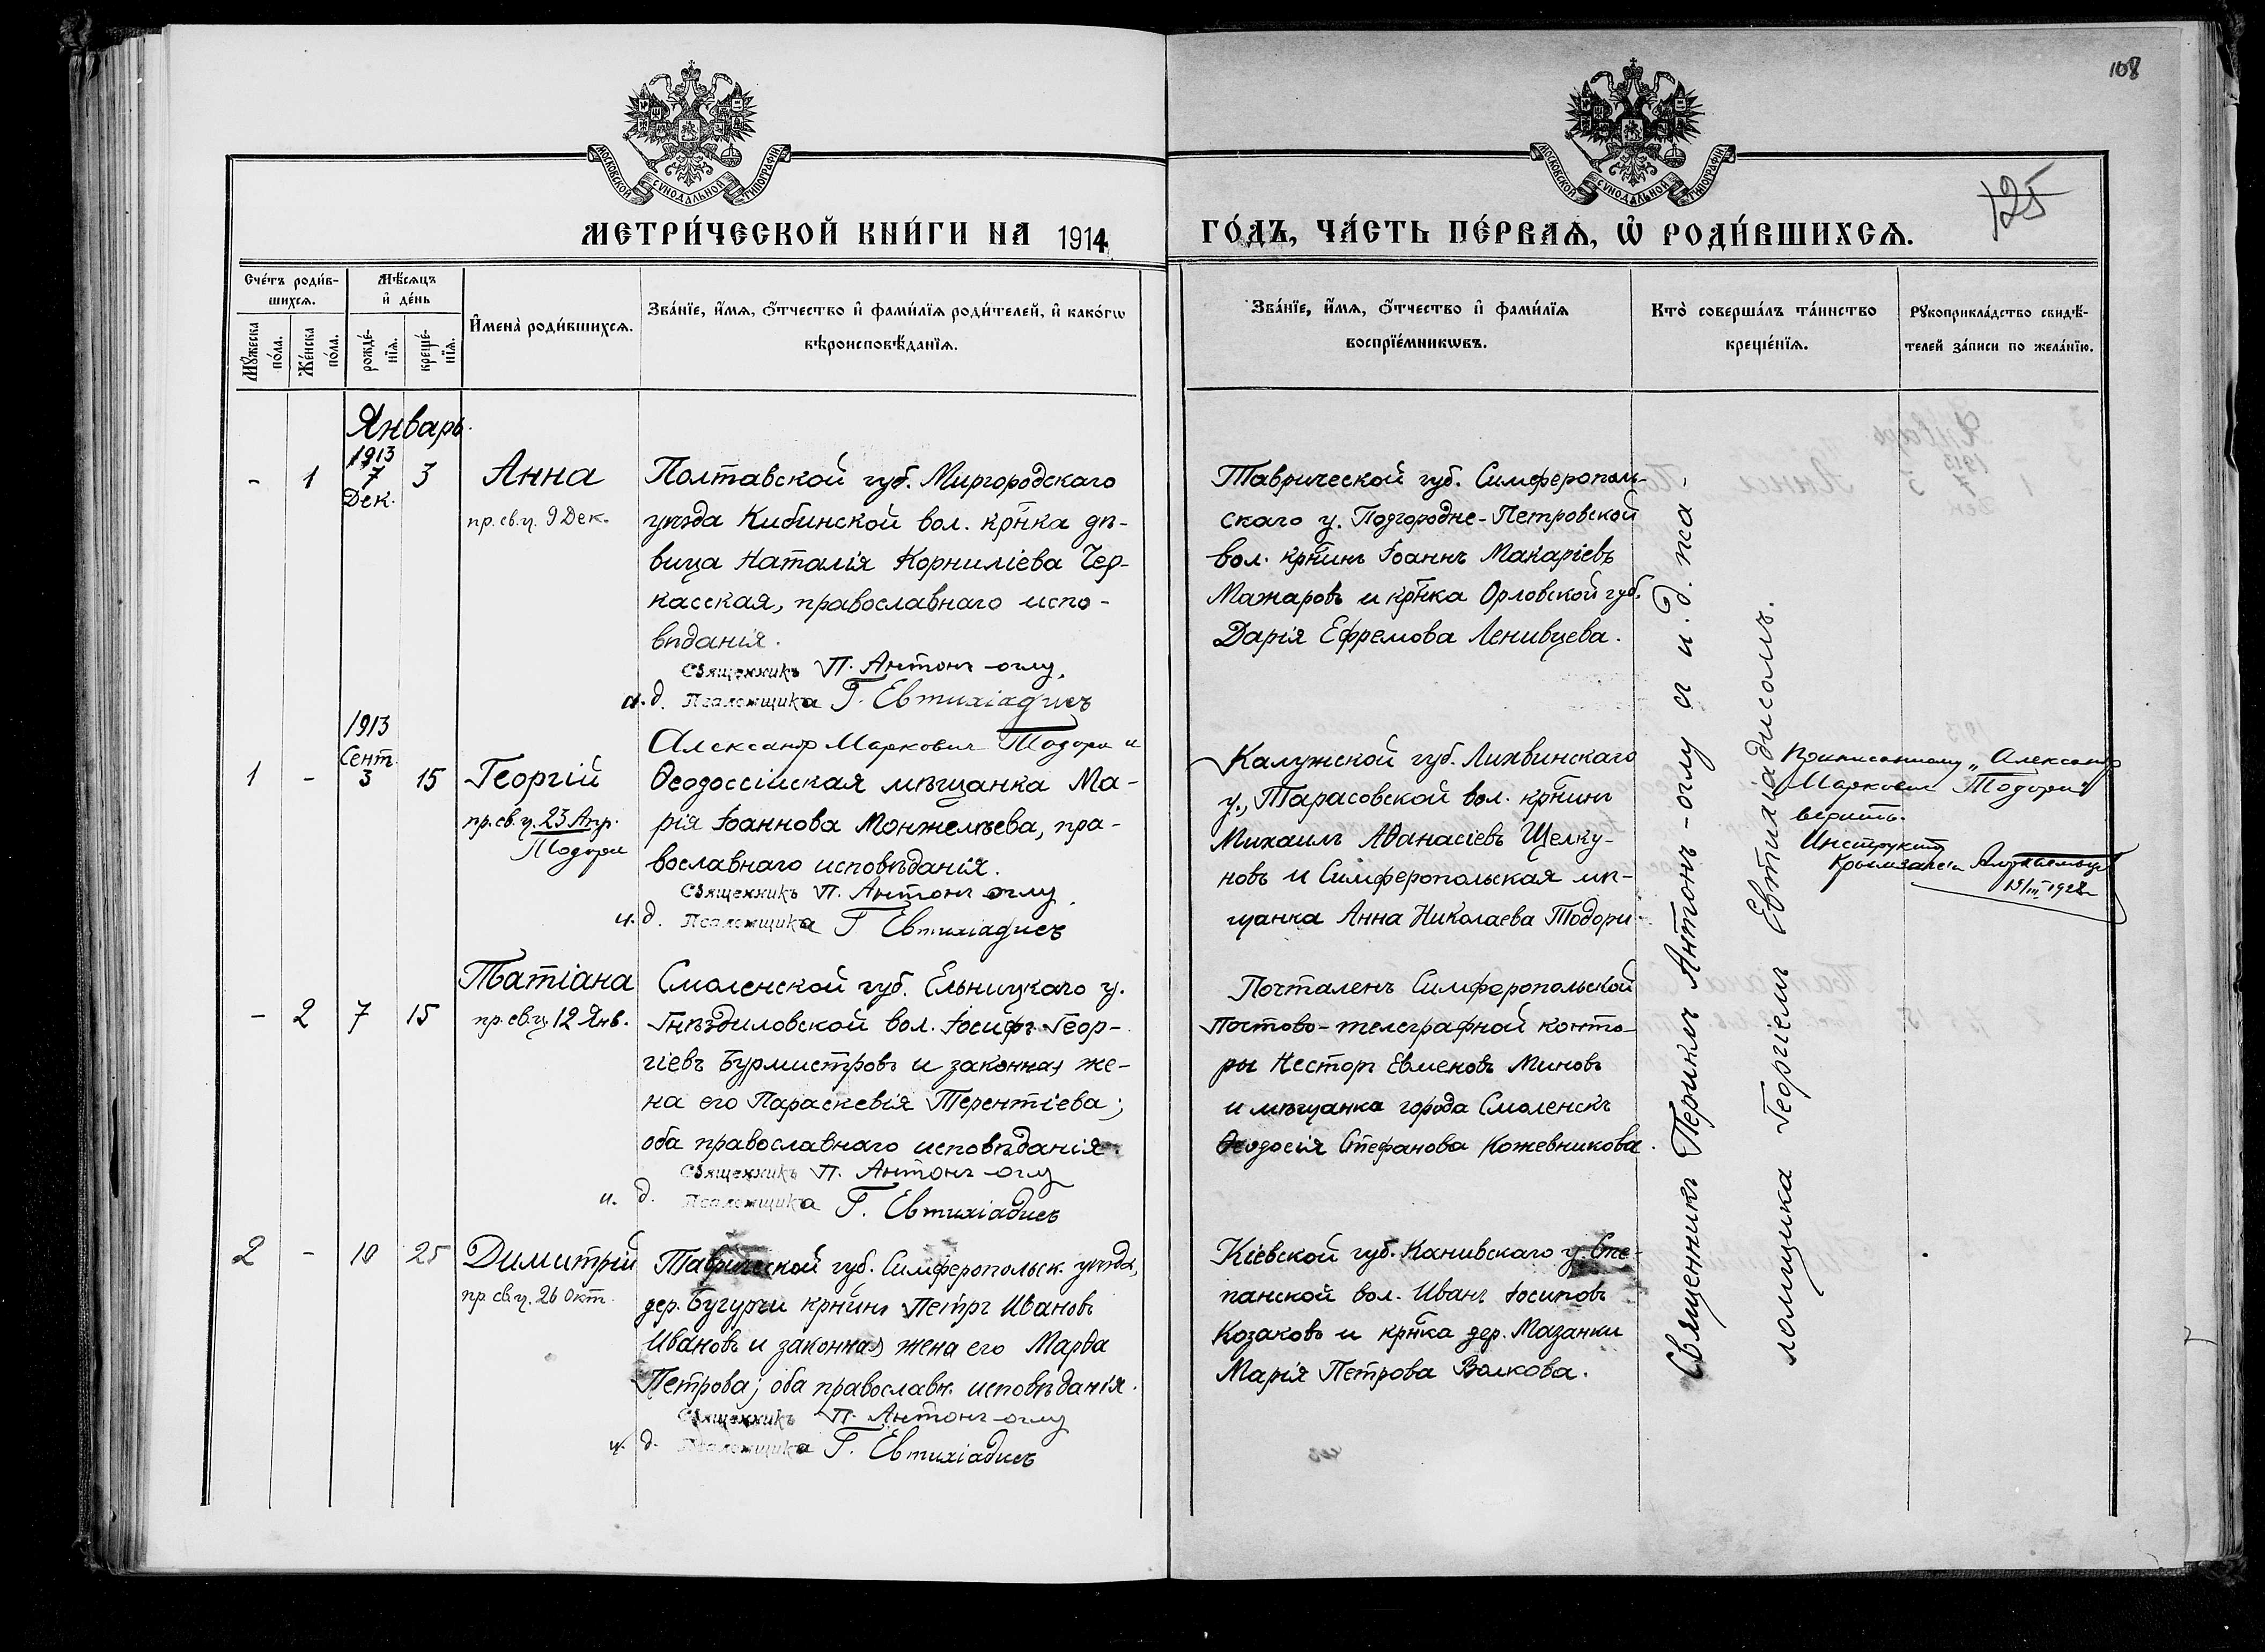 108
125
МОСКОВСКОЙ СѴНОДАЛЬНОЙ ТИПОГРАФІИ
МОСКОВСКОЙ СѴНОДАЛЬНОЙ ТИПОГРАФІИ
МЕТРИ́ЧЕСКОЙ КНИ́ГИ НА 1914
ГО́ДЪ, ЧА́СТЬ ПЕ́РВАѦ, Ѡ҆ РОДИ́ВШИХСѦ.
Сче́тъ роди́в-
шихсѧ.
Мꙋ́жеска
по́ла.
Же́нска
по́ла.
Мѣ́сѧцъ
и҆ де́нь
рожде́-
нїѧ.
креще́-
нїѧ.
И҆мена̀ роди́вшихсѧ.
Зва́нїе, и҆́мѧ, ѻ҆́тчество и҆ фамн́лїѧ роди́телей, и҆ како́гѡ
вѣроисповѣ́данїѧ.
Зва́нїе, и҆́мѧ, ѻ҆́тчество и҆ фами́лїѧ
воспрїе́мникѡвъ.
Кто̀ соверша́лъ та́инство
креще́нїѧ.
Рꙋкоприкла́дство свидѣ́-
телей за́писи по жела́нїю.
Январь
- 1
1913
7
Дек.
3
Анна
пр. св. ц. 9 Дек.
Полтавской губ. Миргородскаго
уѣзда Кибинской вол. кр҃нка дѣ-
вица Наталія Корниліева Чер-
касская, православнаго испо-
вѣданія.
Священникъ П. Антонъ-оглу.
и. д. Псаломщика Г. Евтихіадисъ
Таврической губ. Симферополь-
скаго у. Подгородне-Петровской
вол. кр҃нинъ Іоаннъ Макаріевъ
Мажаровъ и кр҃нка Орловской губ.
Дарія Ефремова Ленивцева.
1 -
1913
Сент.
3
15
Георгій
пр. св. ц. 23 Апр.
Тодори
Александр Маркович Тодори и
Ѳеодоссійская мѣщанка Ма-
рія Іоаннова Монжелѣева, пра-
вославнаго исповѣданія.
Священникъ П. Антонъ-оглу.
и. д. Псаломщика Г Евтихіадисъ
Калужской губ. Лихвинскаго
у., Тарасовской вол. кр҃нинъ
Михаилъ Аѳанасіевъ Щелку-
новъ и Симферопольская мѣ-
щанка Анна Николаева Тодори.
Приписанному „Александр
Маркович Тодори"
верить.
Инструктор
15/III 1928
- 2 7 15
Татіана
пр. св. ц. 12 Янв.
Смоленской губ. Ельницкаго у.
Гнѣздиловской вол. Іосифъ Геор-
гіевъ Бурмистровъ и законная же-
на его Параскевія Терентіева;
оба православнаго исповѣданія.
Священникъ П. Антонъ-оглу
и. д. Псаломщика Г. Евтихіадисъ
Почталенъ Симферопольской
Почтово-телеграфной конто-
ры Несторъ Евменовъ Миновъ
и мѣщанка города Смоленскъ
Ѳеодосія Стефанова Кожевникова.
2 - 10 25
Димитрій
пр. св. ц. 26 Окт.
Таврической губ. Симферопольск. уѣзда,
дер. Бугурчи кр҃нинъ Петръ Ивановъ
Ивановъ и законная жена его Марѳа
Петрова; оба православн. исповѣданія.
Священникъ П. Антонъ-оглу
и. д. Псаломщика Г. Евтихіадисъ
Кіевской губ. Канивскаго у. Сте-
панской вол. Иванъ Іосиповъ
Козаковъ и кр҃нка дер. Мазанки
Марія Петрова Волкова.
Священникъ Periклъ Антонъ-оглу и и. д. пса-
ломщика Георгіемъ Евтихіадисомъ.